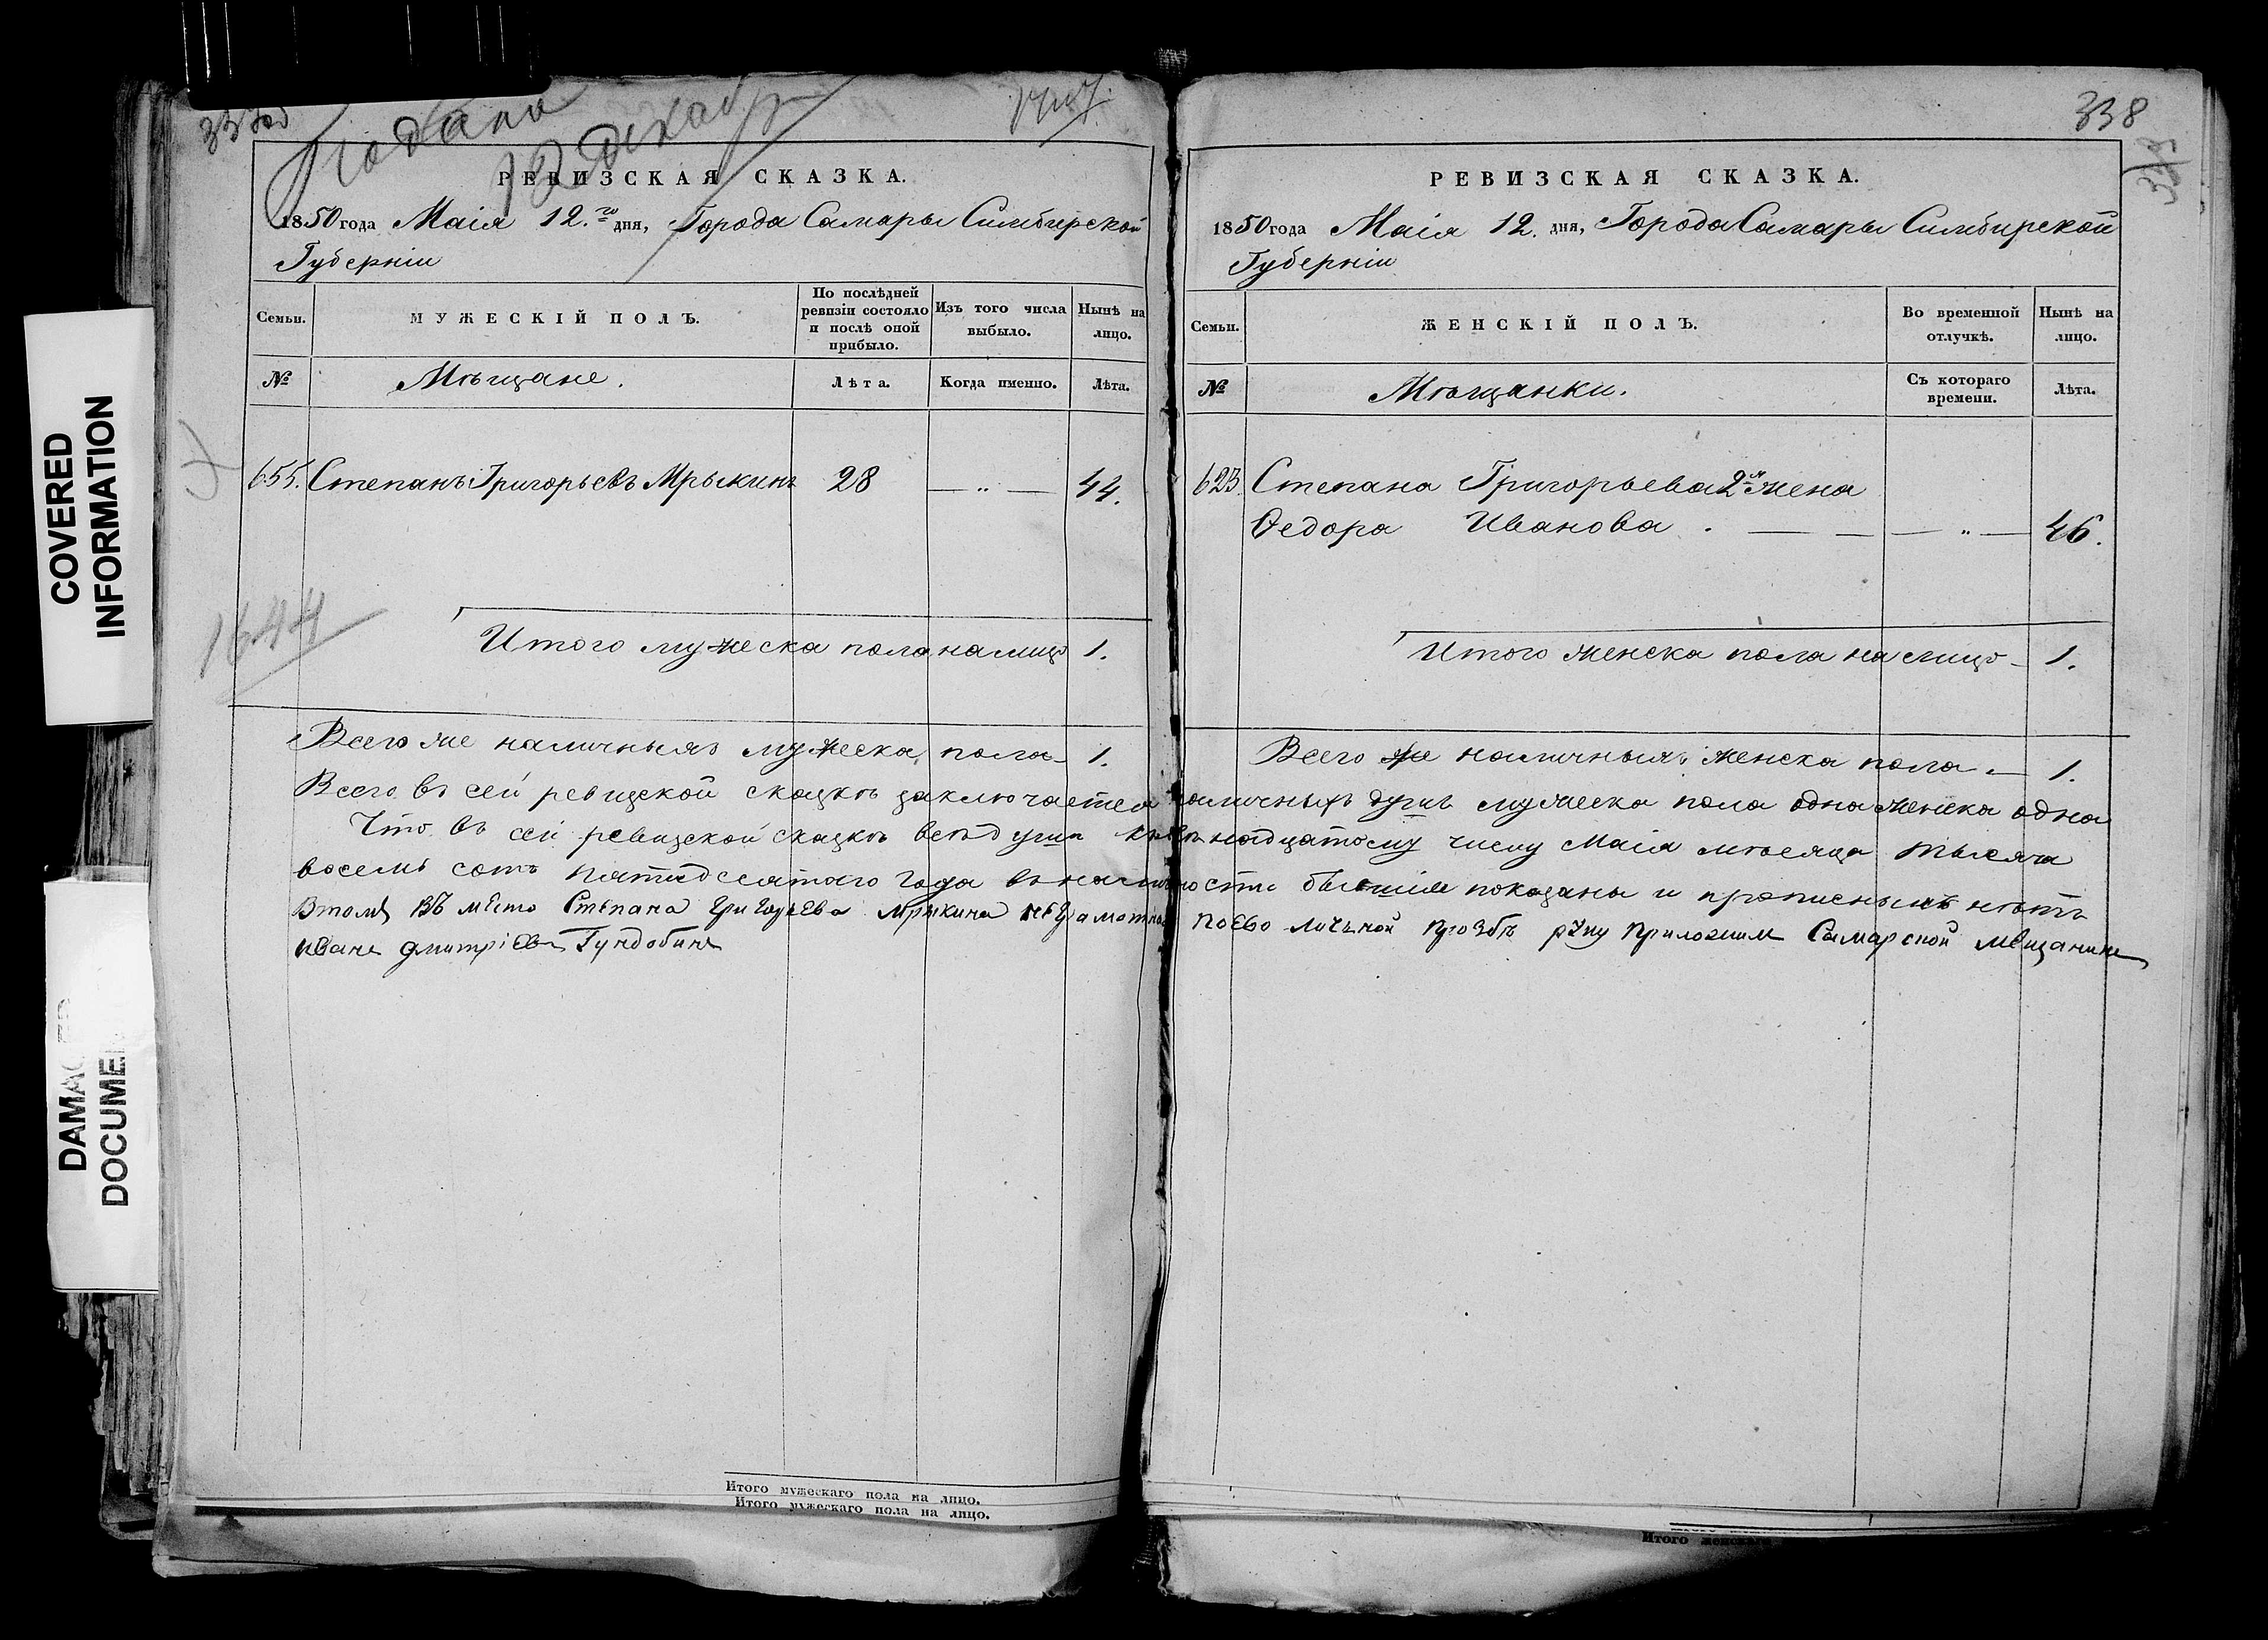 COVERED
INFORMATION
DAMAGED
DOCUMENT
Подана
12 декабр
РЕВИЗСКАЯ СКАЗКА.
1850 года Маія 12.го дня, Города Самары Симбирской
Губерніи
Семьи.
МУЖЕСКІЙ ПОЛЪ.
По послѣдней
ревизіи состояло
и послѣ оной
прибыло.
Изъ того числа
выбыло.
Нынѣ на
лицо.
№
Мѣщане.
Лѣта.
Когда именно.
Лѣта.
655. Степанъ Григорьевъ Мрыкинъ 28 — „ — 44.
1644
Итого мужеска пола на лицо 1.
Всего же наличныхъ мужеска пола 1.
338
РЕВИЗСКАЯ СКАЗКА.
1850 года Маія 12. дня, Города Самары Симбирской
Губерніи
Семьи.
ЖЕНСКІЙ ПОЛЪ.
Во временной
отлучкѣ.
Нынѣ на
лицо.
№
Мѣщанки.
Съ котораго
времени.
Лѣта.
623. Степана Григорьева 2я жена
Ѳедора Иванова . — — — „ — 46.
Итого женска пола на лицо 1.
Всего же наличныхъ женска пола — 1.
Всего въ сей ревизской сказкѣ заключается наличныхъ душъ мужеска пола одна женска одна
Что въ сей ревизской сказкѣ всѣ души надцатому числу Маія мѣсяца тысяча
восемь сотъ пятидесятаго года въ наличности бывшія показаны и прописныхъ нѣтъ
Втомъ въ место Степана Григорьева Мрыкина неграмотна поево личьной прозбѣ руку приложилъ Самарской мещанинъ
иванъ дмитріевъ Гундобинъ
Итого мужескаго пола на лицо.
Итого мужескаго пола на лицо.
Итого женскаго